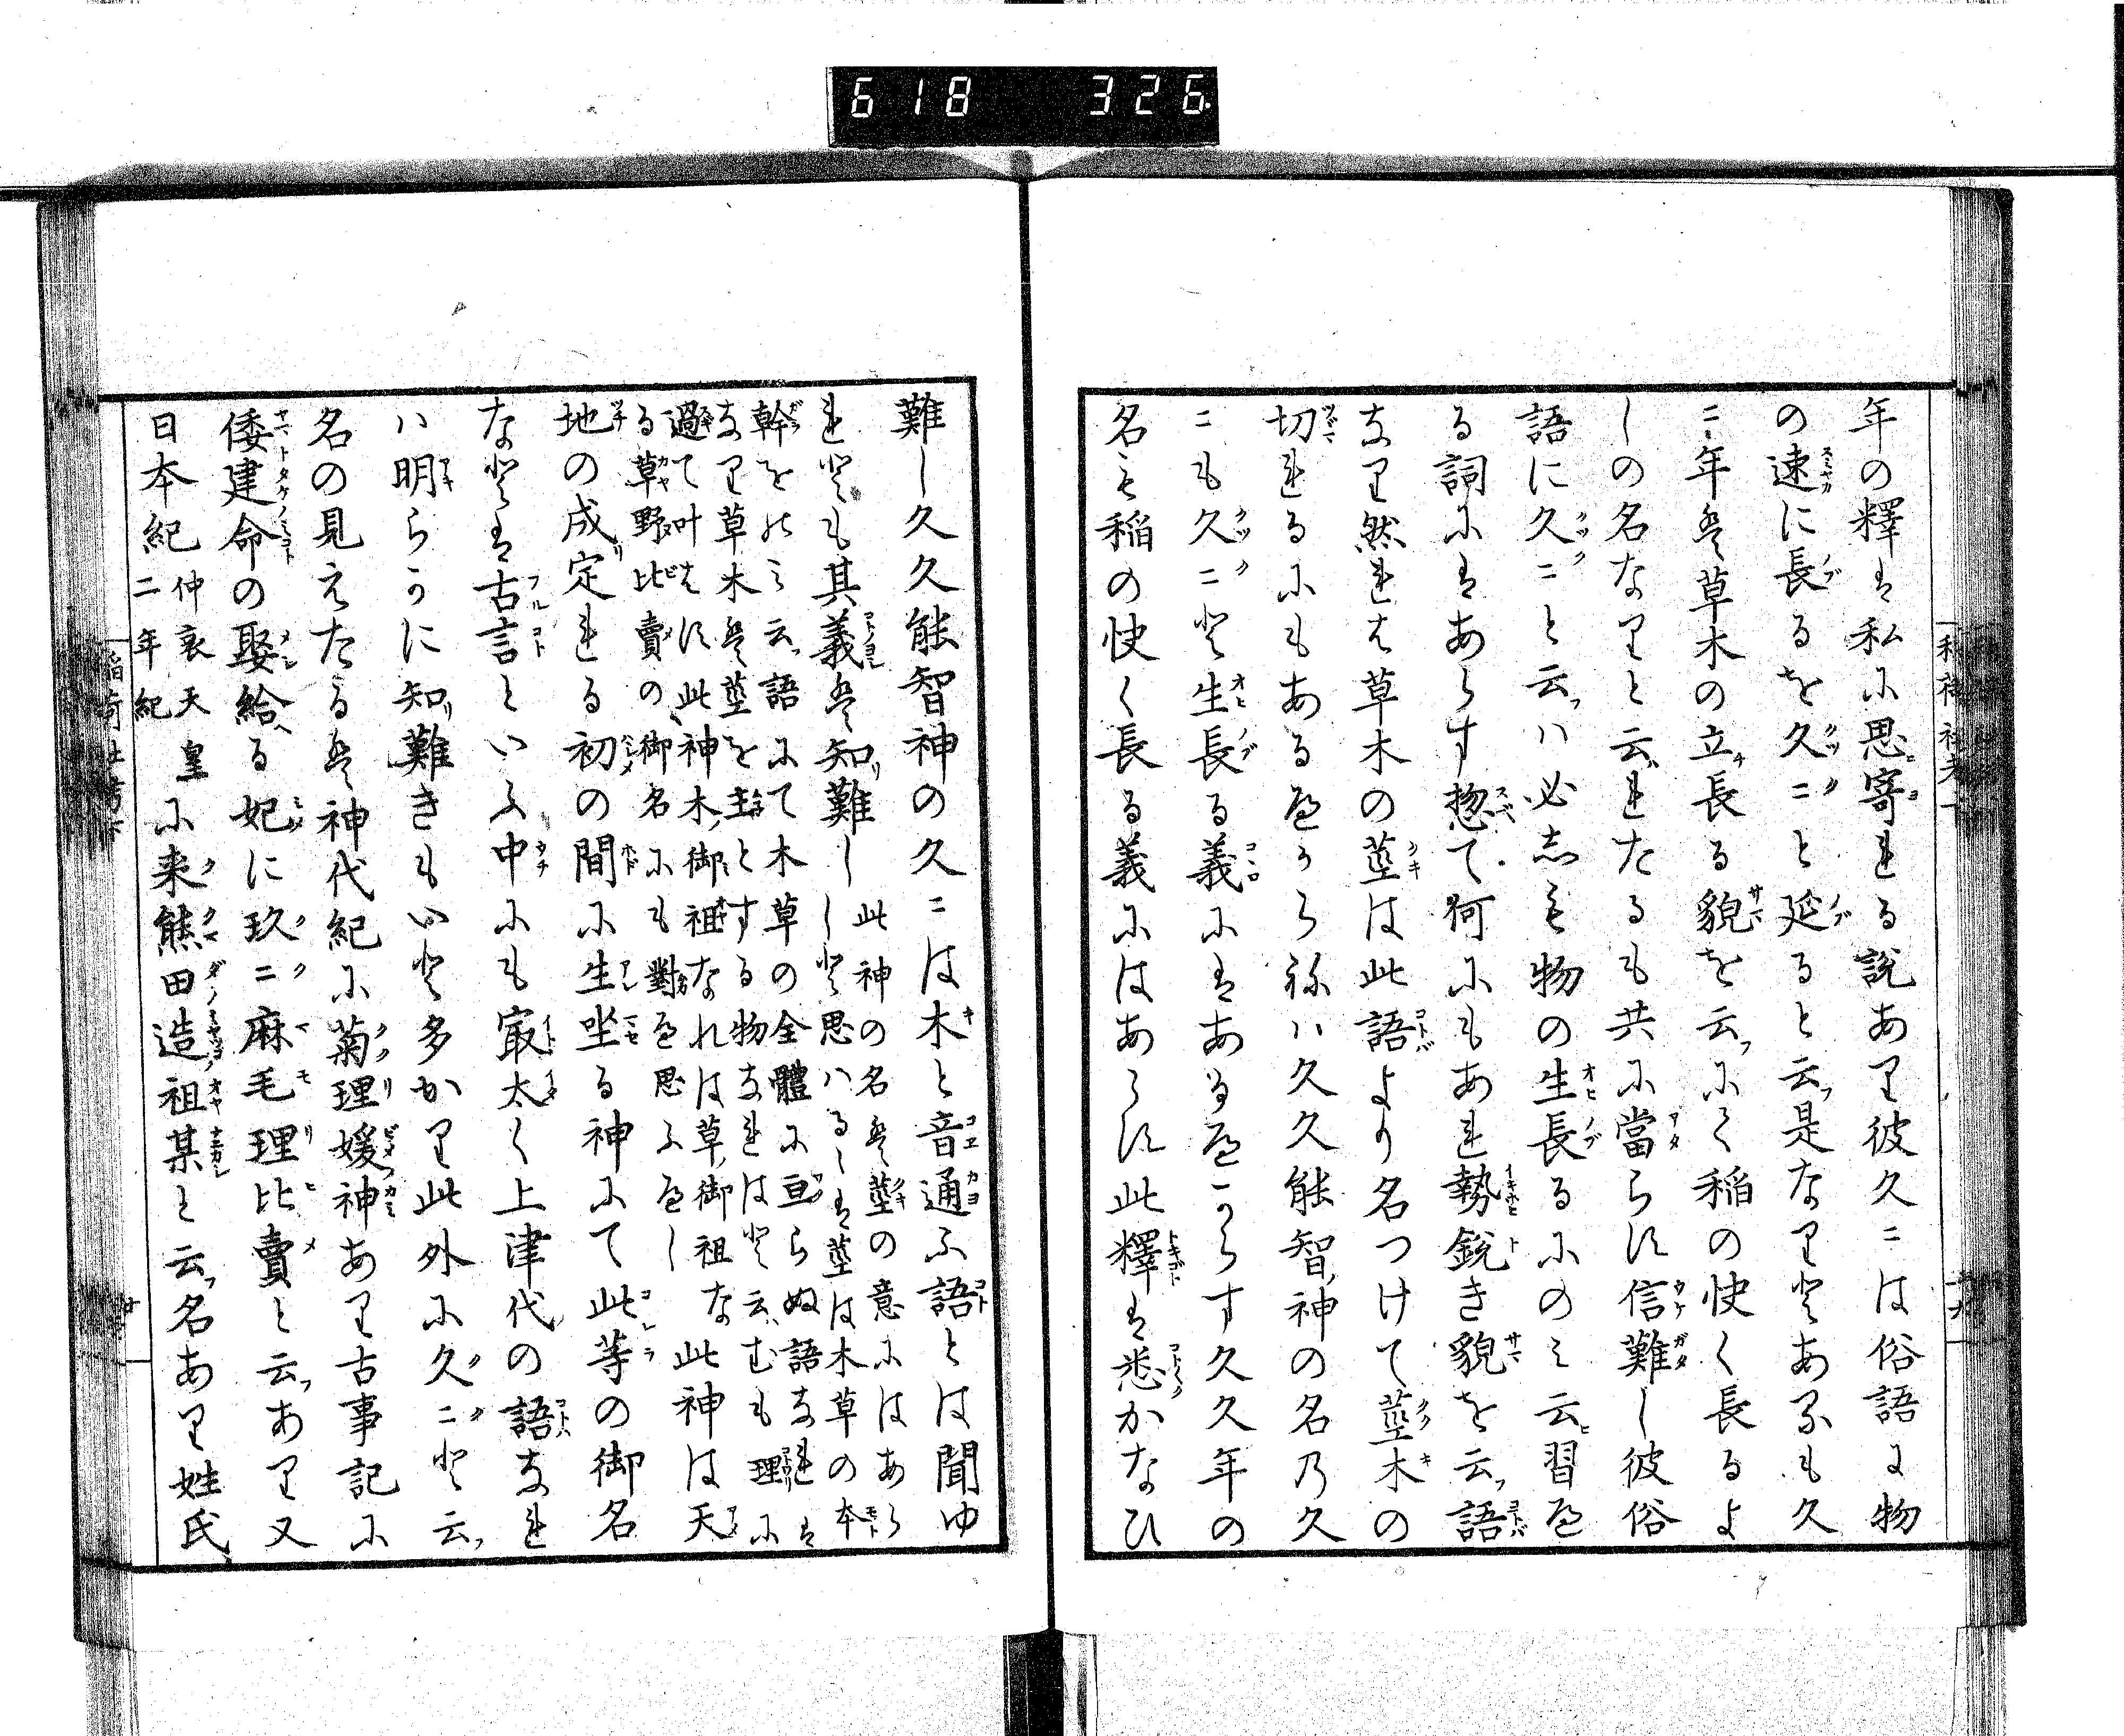 6 18 326.
年の釋は私に思寄れる説あり彼久〻は俗語に物
の速に長るを久〻と延ると云是なりとあれも久
〻年は草木の立長る貌を云にて稲の快く長るよ
しの名なりと云れたるも共に當らす信難し彼俗
語に久〻と云ハ必志も物の生長るにのミ云習へ
る詞にはあらす惣て何にもあれ勢鋭き貌を云語
なり然れは草木の莖は此語より名つけて莖木の
切れるにもあるへからねハ久久能智神の名乃久
〻も久〻と生長る義にはあるへからす久久年の
名も稲の快く長る義にはあらす此釋は悉かなひ
難し久久能智神の久〻は木と音通ふ語とは聞ゆ
れとも其義は知難し
此神の名は莖の意にはあら
しと思ハるゝは莖は木草の本
幹をのミ云語にて木草の全體に亘らぬ語なれは
なり草木は莖を主とする物なれはと云むも理に
過て叶はす此神木御祖なれは草御祖な
る草野比賣の御名にも對へ思ふへし
此神は天
地の成定れる初の間に生坐る神にて此等の御名
なとは古言といふ中にも寂太く上津代の語なれ
ハ明らかに知難きもいと多かり此外に久〻と云
名の見えたるは神代紀に菊理媛神あり古事記に
倭建命の娶給る妃に玖〻麻毛理比賣と云あり又
日本紀
仲哀天皇
二年紀
に来熊田造祖某と云名あり姓氏
稲荷社考下
廿